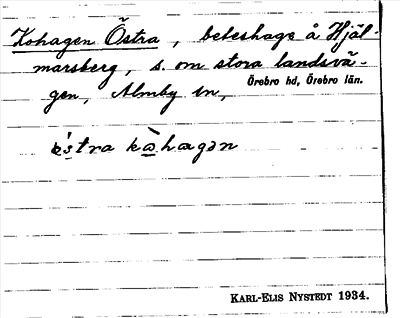 Kohagen Östra, beteshage å Hjäl-
marsberg, s. om stora landsvä-
gen, Almby sn,
Örebro hd, Örebro län.
östra kòhagən
KARL-ELIS NYSTEDT 1934.